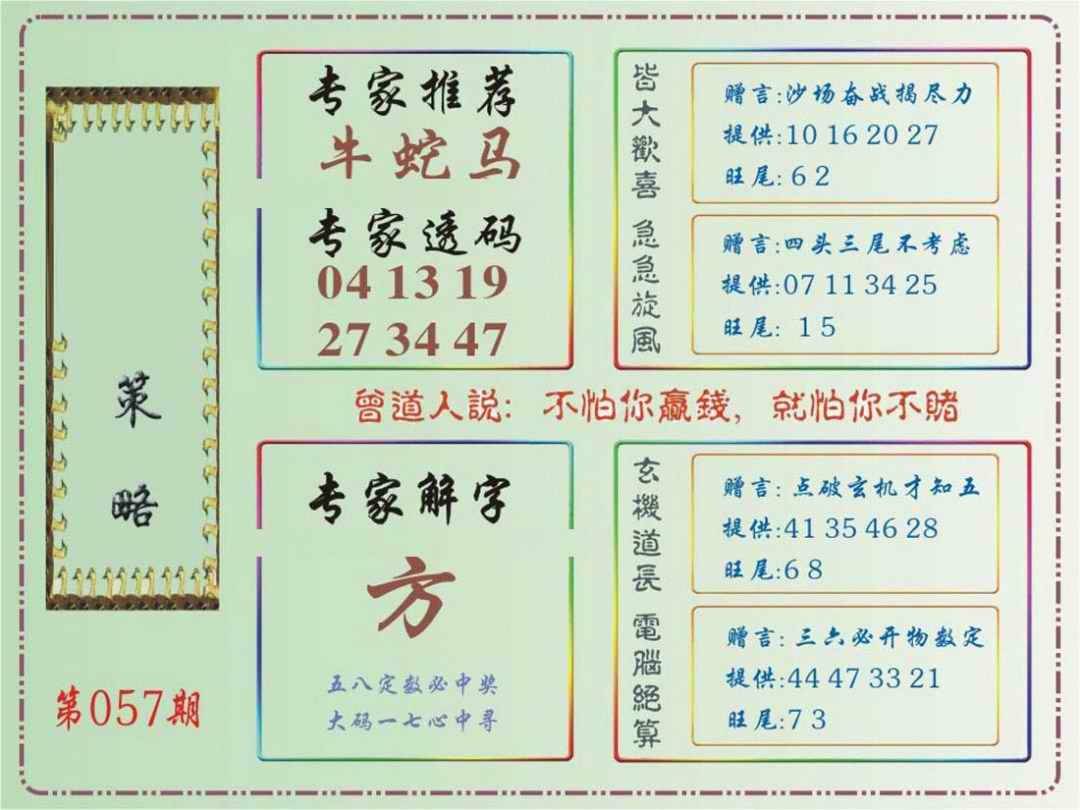 策略
第057期
专家推荐
牛 蛇 马
专家透码
04 13 19
27 34 47
皆大歡喜
赠言:沙场奋战揭尽力
提供:10 16 20 27
旺尾:6 2
急急旋風
赠言:四头三尾不考虑
提供:07 11 34 25
旺尾: 1 5
曾道人説: 不怕你贏錢, 就怕你不賭
专家解字
方
五八定数必中奖
大码一七心中寻
玄機道長
赠言: 点破玄机才知五
提供:41 35 46 28
旺尾:6 8
電腦絕算
赠言: 三六必开物数定
提供:44 47 33 21
旺尾:7 3